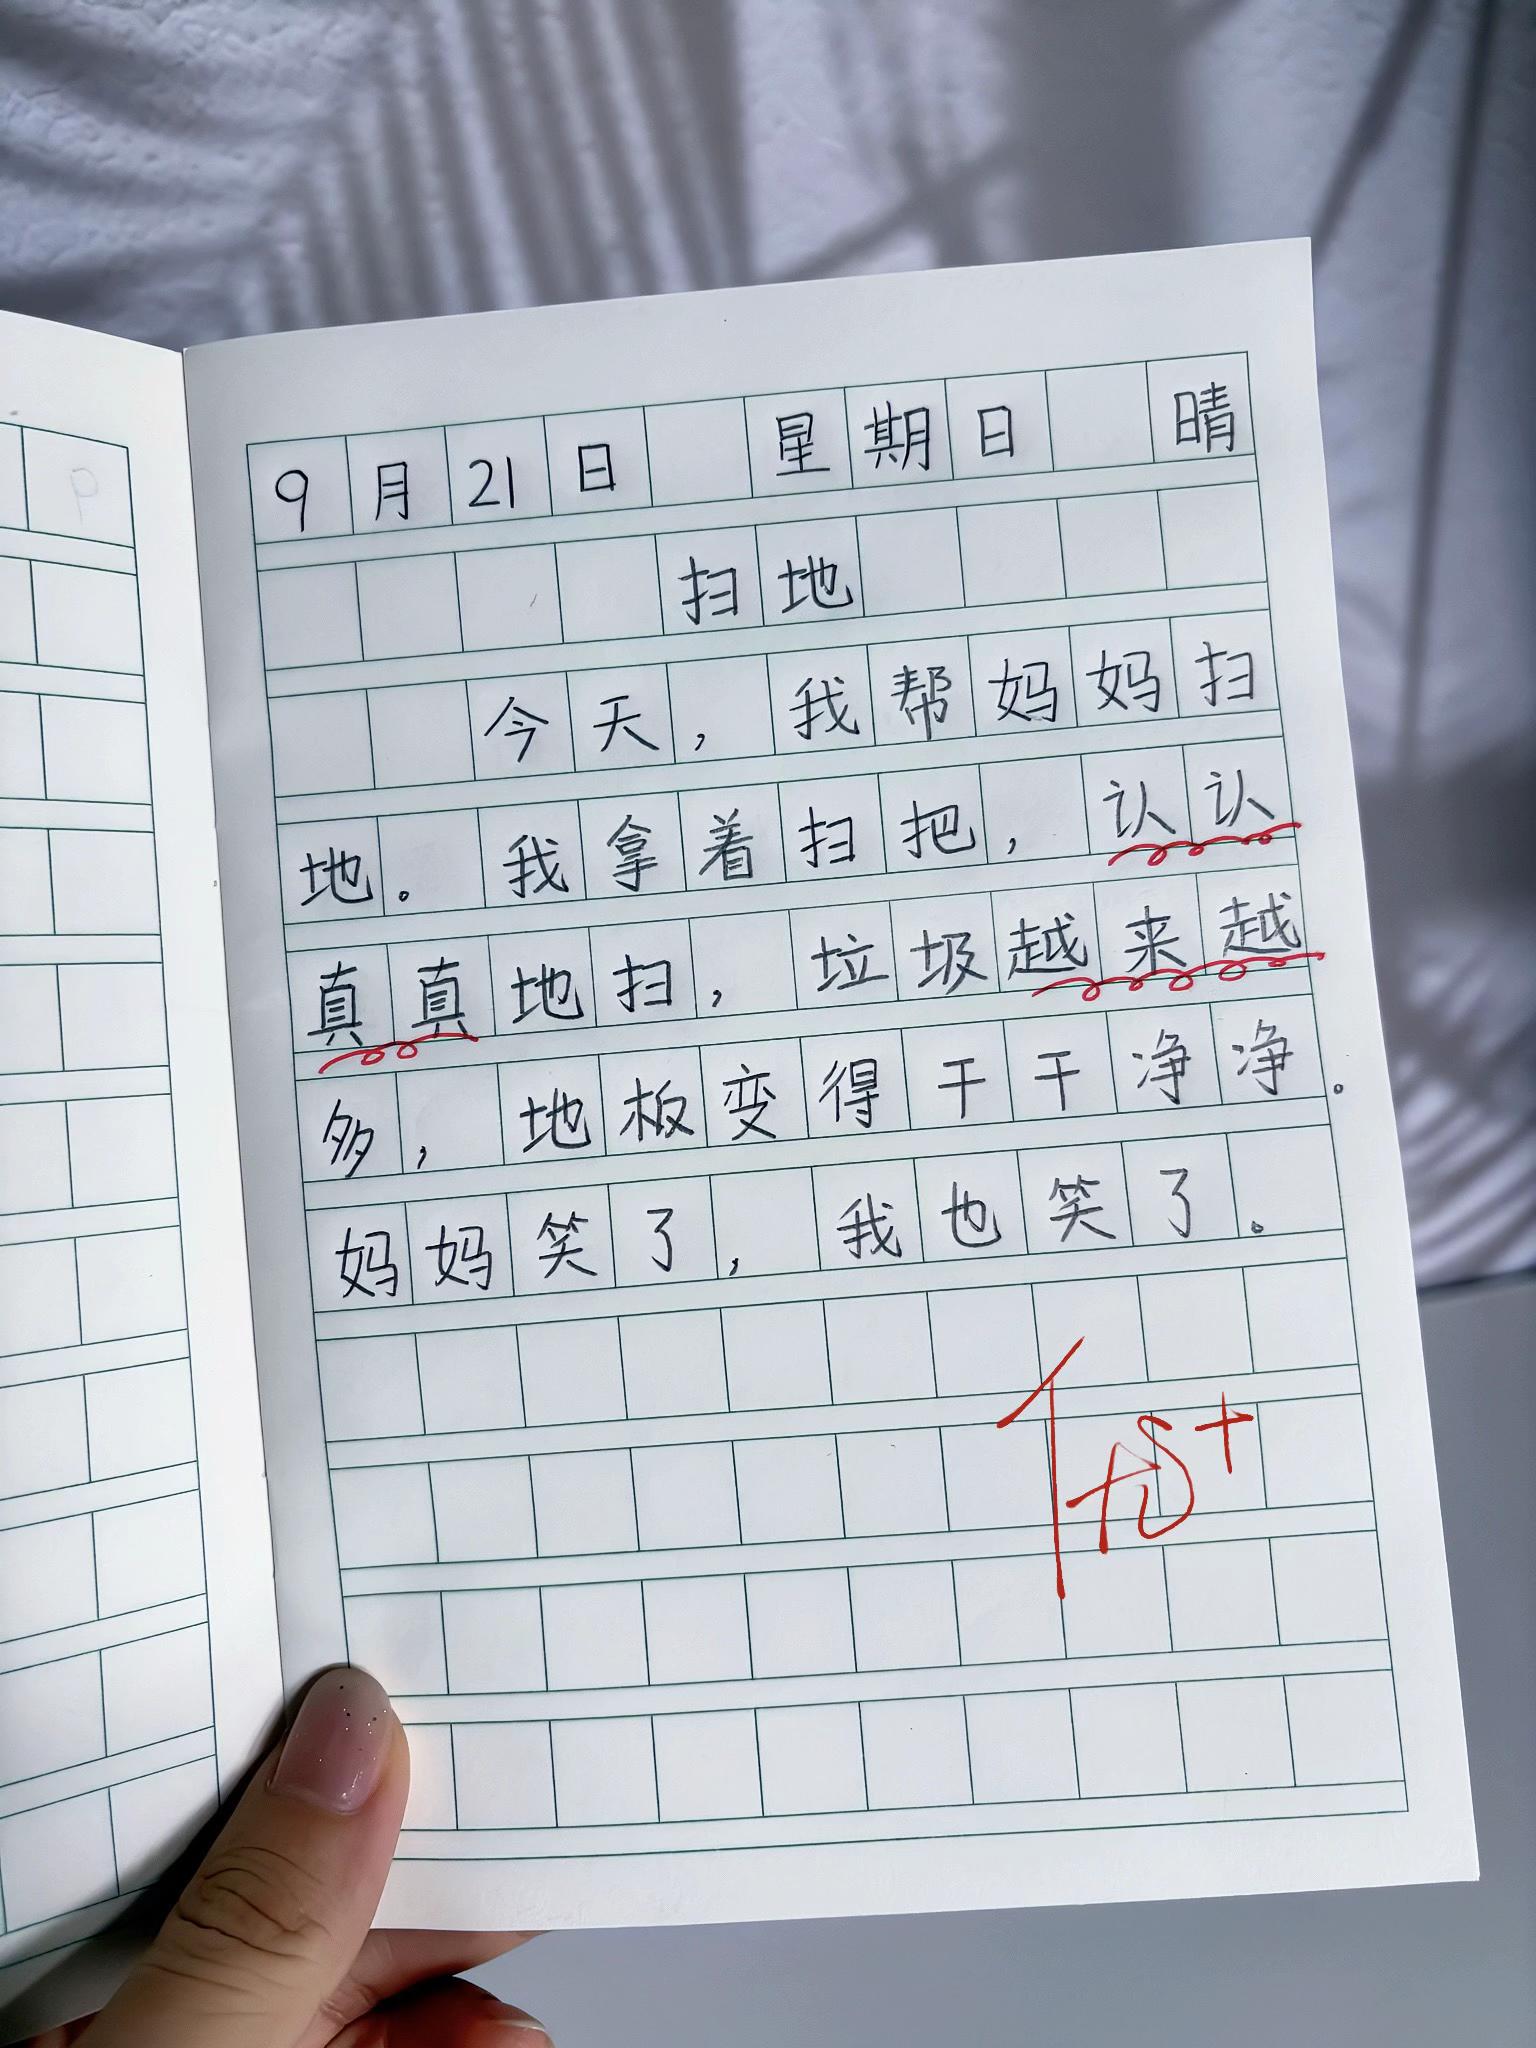 9月21日 星期日 晴
扫地
今天，我帮妈妈扫
地。我拿着扫把，认认
真真地扫，垃圾越来越
多，地板变得干干净净。
妈妈笑了，我也笑了。